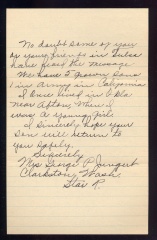 No doubt some of you
or your friends in Tulsa
have feed the message
We have 5 grown Sons
1 in Army in California
I have lived in Okla
near Afton, When I
was a young girl
I Sincerely hope your
Son will return to
you Safely.
Sincerely
Mrs George P
Clarkston, Wash.
Star R